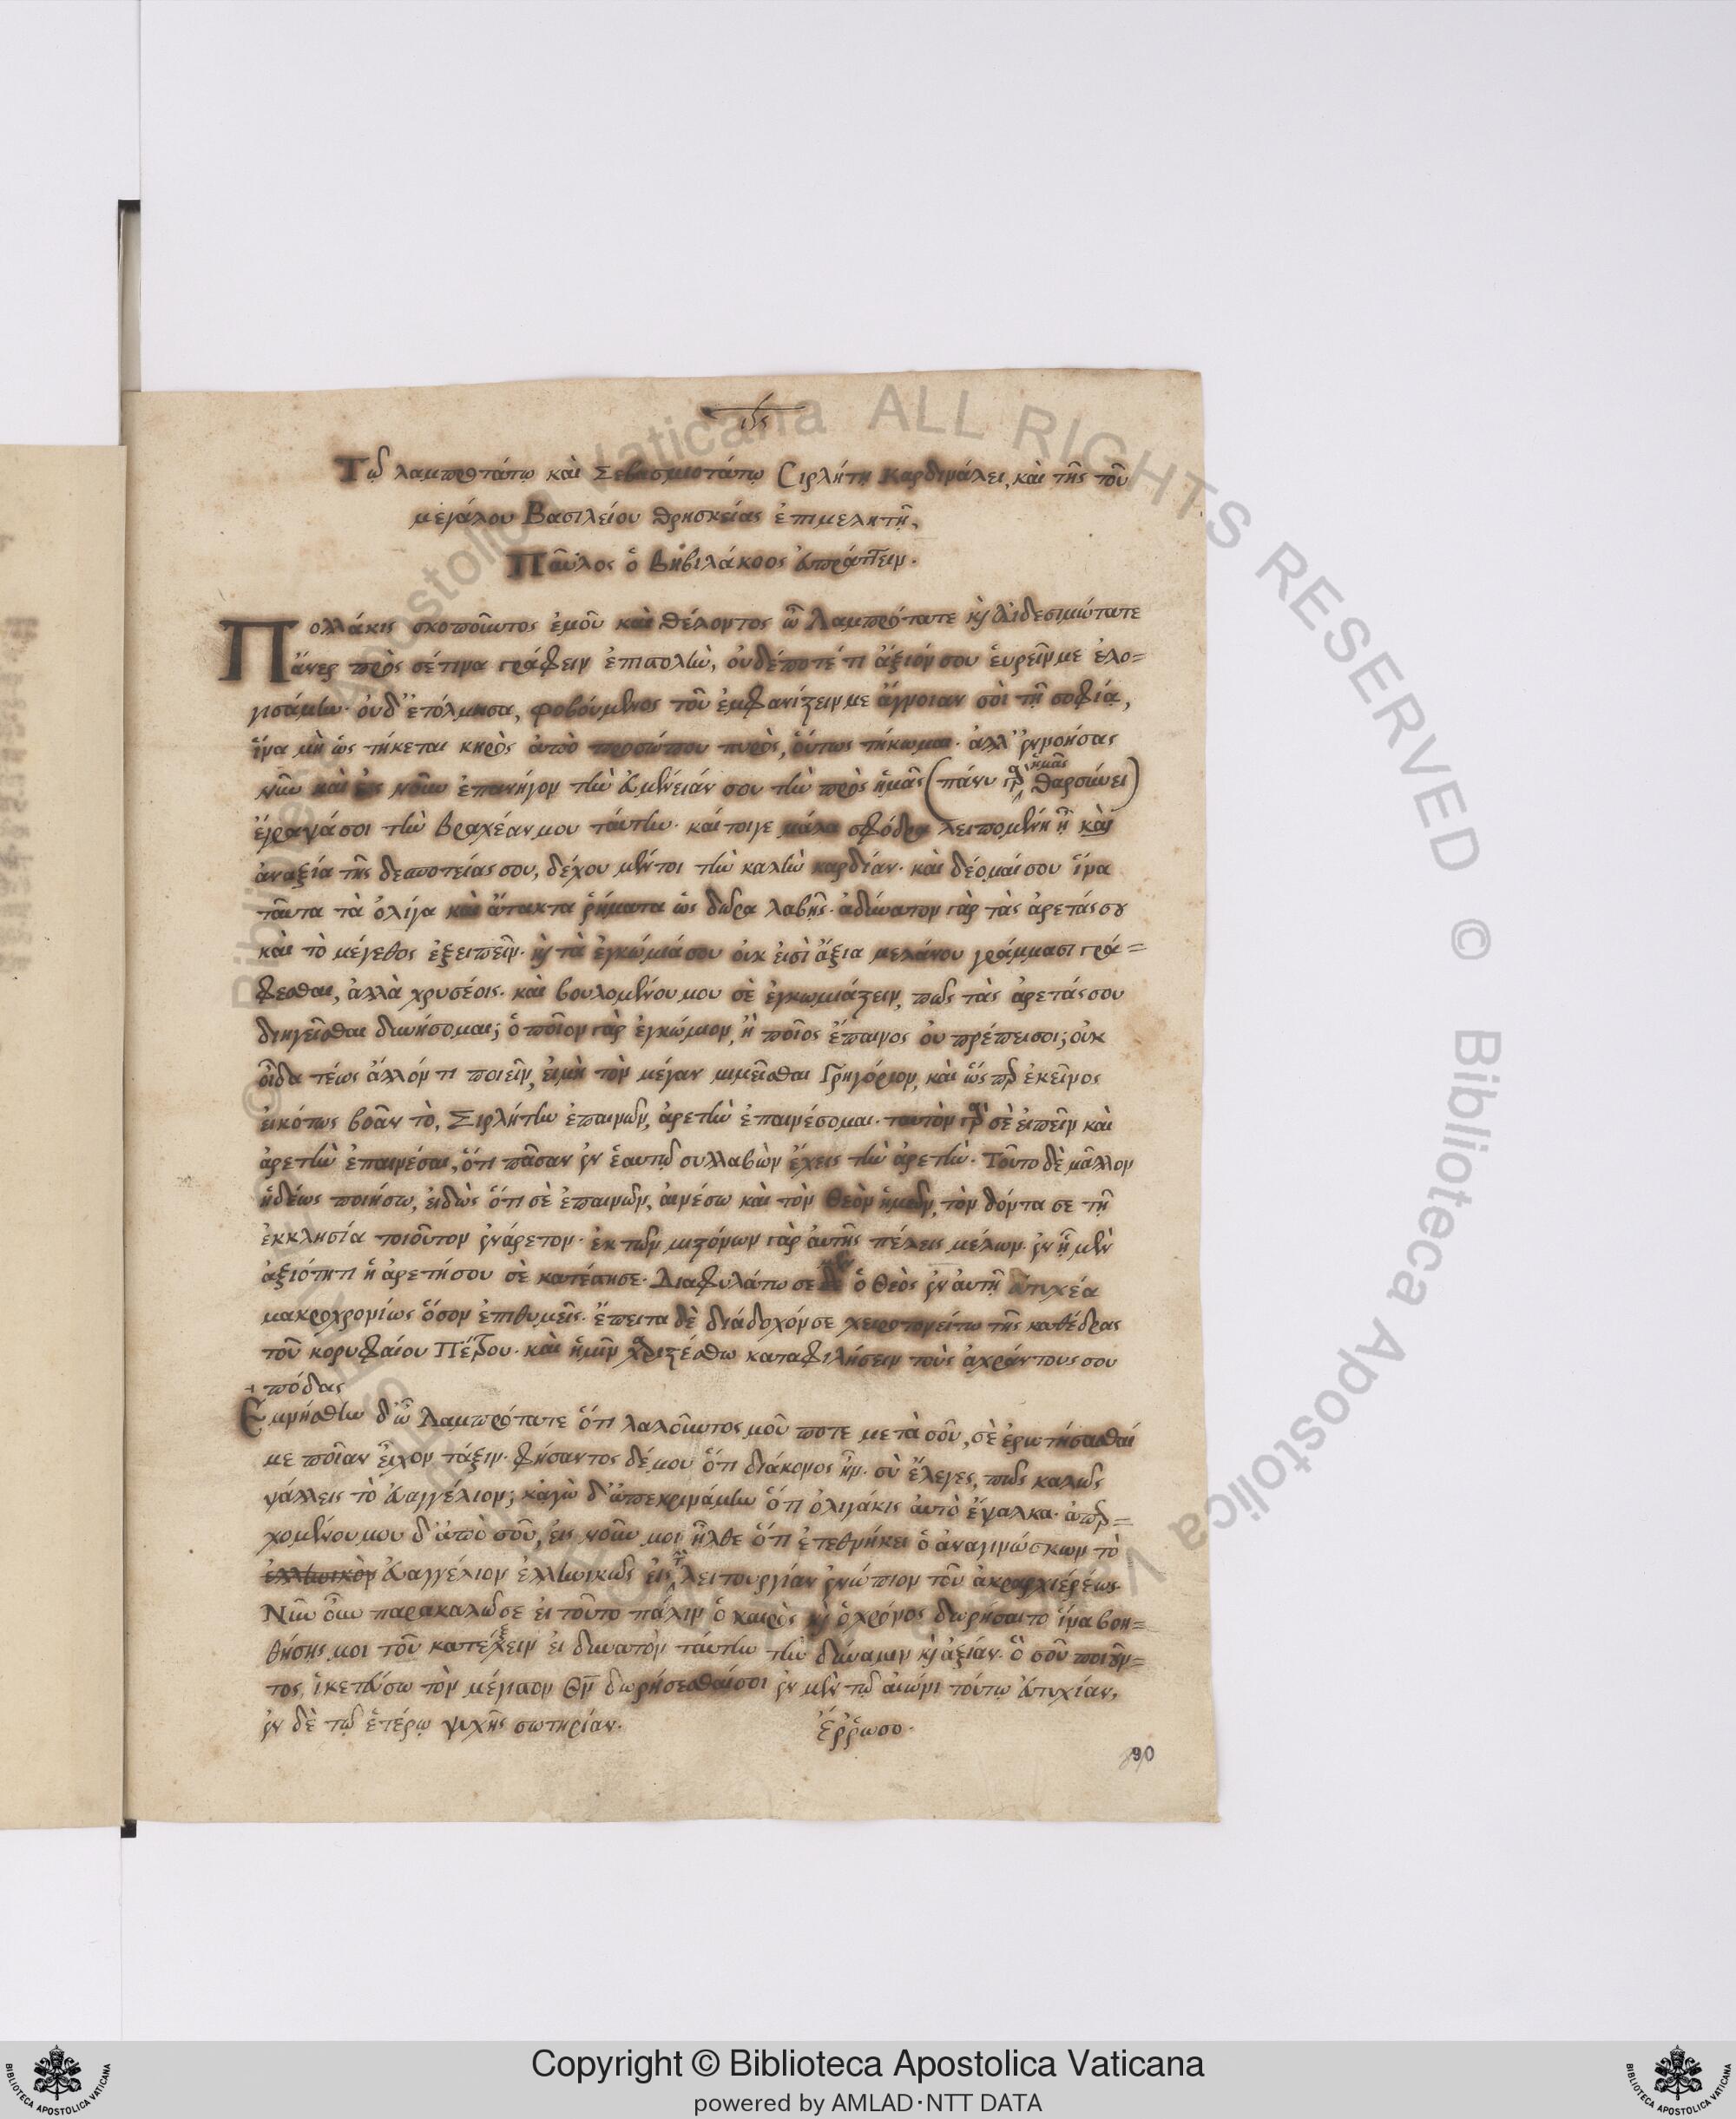 ιης
Τῷ λαμπροτάτῳ καὶ Σεβασμιοτάτῳ Σιρλήτῃ Καρδινάλει, καὶ τῆς τοῦ
μεγάλου Βασιλείου θρησκείας ἐπιμελητῇ,
Παῦλος ὁ Βηβιλάκοος εὐπράττειν.
Πολλάκις σκοποῦντος ἐμοῦ καὶ θέλοντος ὦ Λαμπρότατε καὶ Αἰδεσιμώτατε
ἄνερ πρὸς σέ τινα γράφειν ἐπιστολὴν, οὐδέποτέ τι ἄξιόν σου εὑρεῖν με ἐλο=
γισάμην. οὐδ' ἐτόλμησα, φοβούμενος τοῦ ἐμφανίζειν με ἄγνοιαν σοὶ τῇ σοφίᾳ,
ἵνα μὴ ὡς τήκεται κηρὸς ἀπὸ προσώπου πυρὸς, οὕτως τήκωμαι. ἀλλ' ἐννοήσας
νῦν καὶ εἰς νοῦν ἐπανήγον τὴν εὐμένειάν σου τὴν πρὸς ἡμᾶς (πάνυ γὰρ ἡμᾶς θαρσύνει)
ἔγραψά σοι τὴν βραχέαν μου ταύτην. καί τοιγε μάλα σφόδρα λειπομένη ἦ καὶ
ἀναξία τῆς δεσποτείας σου, δέχου μέντοι τὴν καλὴν καρδίαν. καὶ δέομαί σου ἵνα
ταῦτα τὰ ὀλίγα καὶ ἄτακτα ῥήματα ὡς δῶρα λαβῇς. ἀδύνατον γὰρ τὰς ἀρετάς σου
καὶ τὸ μέγεθος ἐξειπεῖν. καὶ τὰ ἐγκώμιά σου οὐκ εἰσὶ ἄξια μελάνου γράμμασι γρά=
φεσθαι, ἀλλὰ χρυσέοις. καὶ βουλομένου μου σὲ ἐγκωμιάζειν, πῶς τὰς ἀρετάς σου
διηγεῖσθαι δυνήσομαι; ὁποῖον γὰρ ἐγκώμιον, ἢ ποῖος ἔπαινος οὐ πρέπει σοι; οὐκ
οἶδα τέως ἄλλόν τι ποιεῖν, εἰμὴ τὸν μέγαν μιμεῖσθαι Γρηγόριον, καὶ ὥσπερ ἐκεῖνος
εἰκότως βοᾶν τὸ, Σιρλήτην ἐπαινῶν, ἀρετὴν ἐπαινέσομαι. ταυτὸν γὰρ σὲ εἰπεῖν καὶ
ἀρετὴν ἐπαινέσαι, ὅτι πᾶσαν ἐν ἑαυτῷ συλλαβὼν ἔχεις τὴν ἀρετὴν. Τοῦτο δὲ μᾶλλον
ἡδέως ποιήσω, εἰδὼς ὅτι σὲ ἐπαινῶν, αἰνέσω καὶ τὸν Θεὸν ἡμῶν, τὸν δόντα σε τῇ
ἐκκλησίᾳ τοιοῦτον ἐνάρετον. ἐκ τῶν μιζόνων γὰρ αὐτῆς πέλεις μέλων. ἐν ᾗ μὲν
ἀξιότητι ἡ ἀρετή σου σὲ κατέστησε. Διαφυλάττω σε ὁ Θεὸς ἐν αὐτῇ εὐτυχέα
μακροχρονίως ὅσον ἐπιθυμεῖς. ἔπειτα δὲ διάδοχόν σε χειροτονείτω τῆς καθέδρας
τοῦ κορυφαίου Πέτρου. καὶ ἡμῖν χαριζέσθω καταφιλήσειν τοὺς ἀχράντους σου
πόδας
Ἐμνήσθην δ' ὦ Λαμπρότατε ὅτι λαλοῦντος μοῦ ποτε μετὰ σοῦ, σὲ ἐρωτήσασθαί
με ποῖαν εἶχον τάξιν. φήσαντος δέ μου ὅτι διάκονος ἦν. σὺ ἔλεγες, πῶς καλῶς
ψάλλεις τὸ εὐαγγέλιον; κἀγὼ δ' ἀπεκρινάμην ὅτι ὀλιγάκις αὐτὸ ἔψαλκα. ἀπερ=
χομένου μου δ' ἀπὸ σοῦ, εἰς νοῦν μοι ἦλθε ὅτι ἐτεθνήκει ὁ ἀναγινώσκων τὸ
ἑλληνικὸν εὐαγγέλιον ἑλληνικῶς εἰς τὴν λειτουργίαν ἐνώπιον τοῦ ἀκραρχιέρέως.
Νῦν οὖν παρακαλῶ σε εἰ τοῦτο πάλιν ὁ καιρὸς καὶ ὁ χρόνος δωρήσαιτο ἵνα βοη=
θήσῃς μοι τοῦ κατέχειν εἰ δυνατὸν ταύτην τὴν δύναμιν καὶ ἀξίαν. ὃ σοῦ ποιοῦν=
τος, ἱκετεύσω τὸν μέγιστον Θν δωρήσεσθαί σοι ἐν μὲν τῷ αἰῶνι τούτῳ εὐτυχίαν,
ἐν δὲ τῷ ἑτέρῳ ψυχῆς σωτηρίαν. Ἔῤῥωσο.
90
Copyright © Biblioteca Apostolica Vaticana
powered by AMLAD·NTT DATA